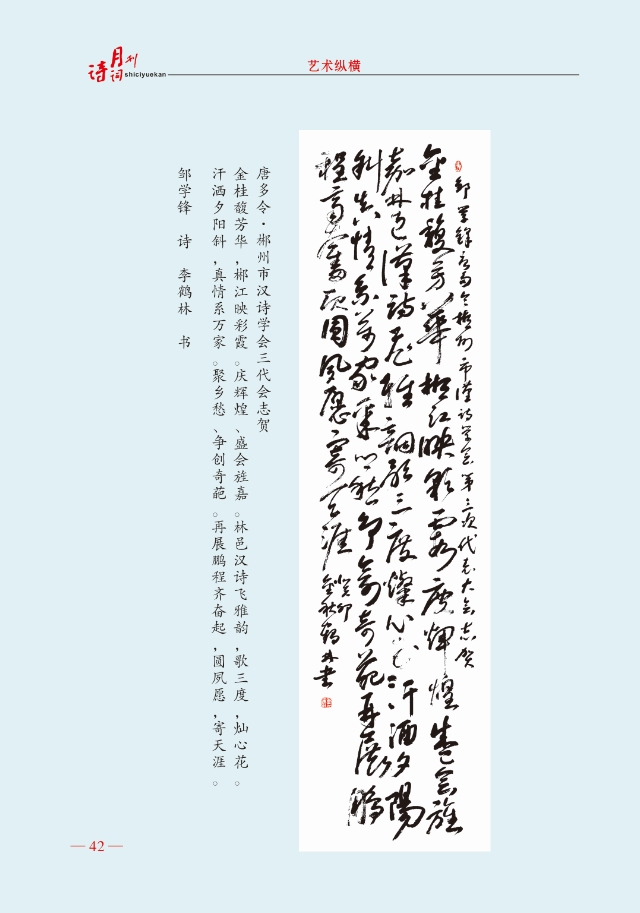 诗词月刊
shiciyuekan
艺术纵横
邹学锋
金桂馥芳华郴江映彩霞庆辉煌盛会旌
嘉林邑漢詩飞雅韻歌三度燦心花汗洒夕陽
斜真情系万家聚乡愁争创奇葩再展鵬
程齐奋起圆夙愿寄天涯
癸卯
金秋鹤林书
唐多令·郴州市汉诗学会三代会志贺
金桂馥芳华,郴江映彩霞。庆辉煌、盛会旌嘉。林邑汉诗飞雅韵,歌三度,灿心花。
汗洒夕阳斜,真情系万家。聚乡愁、争创奇葩。再展鹏程齐奋起,圆夙愿,寄天涯。
邹学锋 诗 李鹤林 书
— 42 —